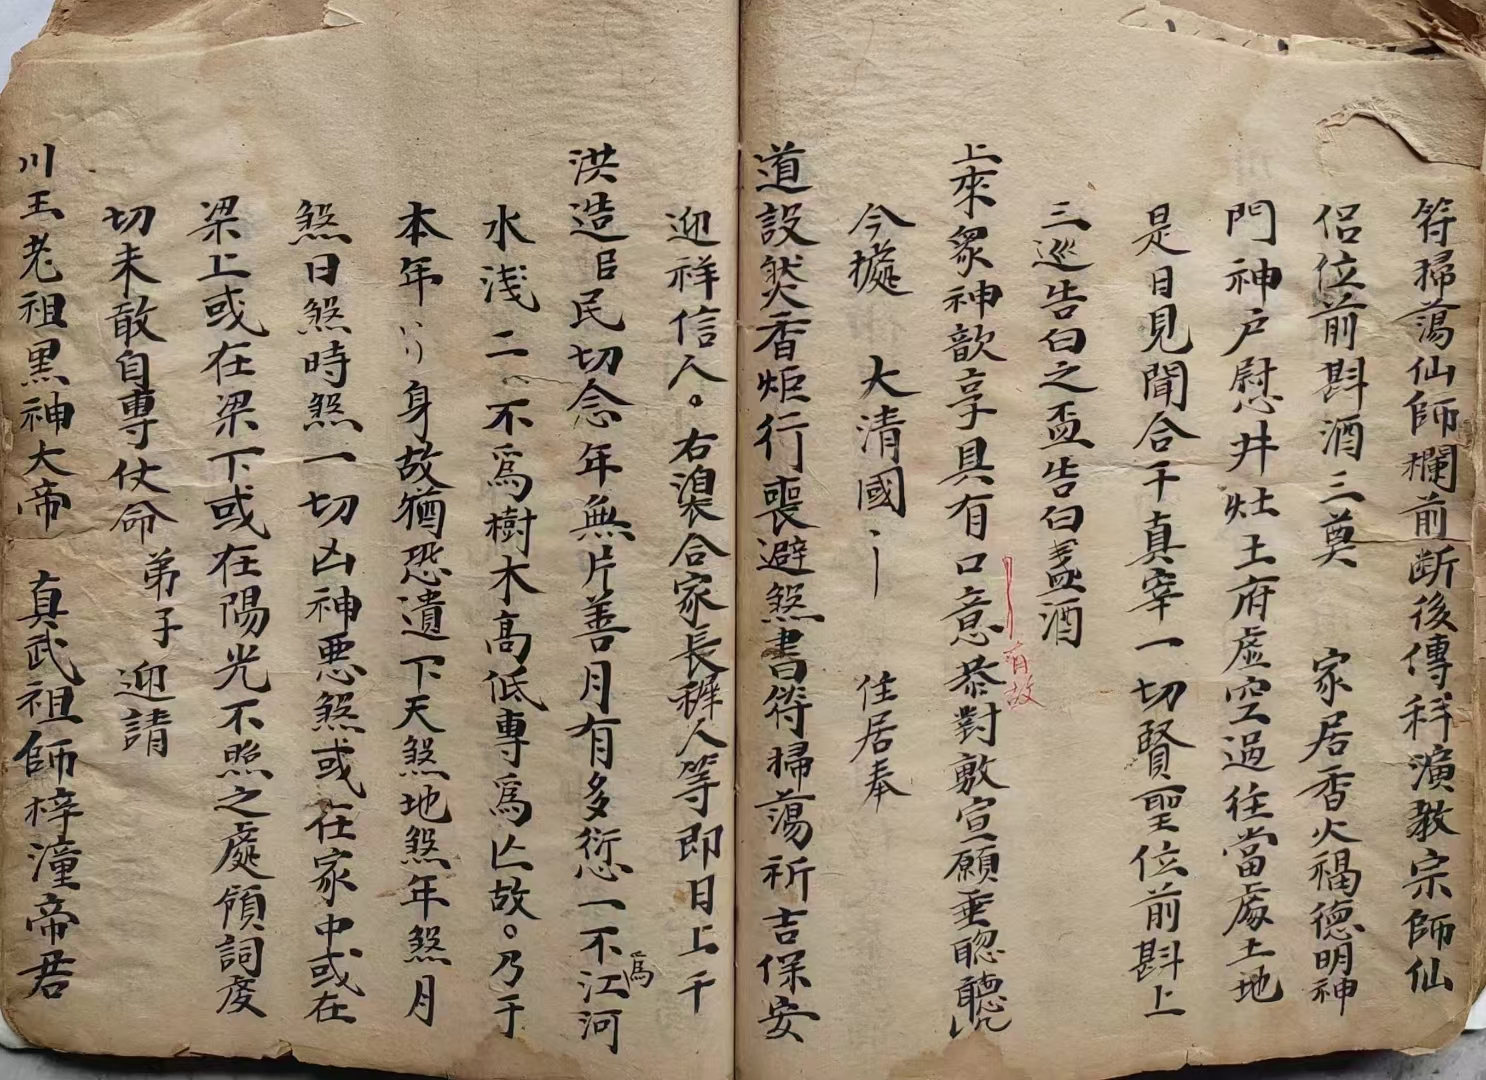 符掃蕩仙師欄前断後傳科演教宗師仙
侣位前斟酒三奠　家居香火福德明神
門神户尉井灶土府虚空過往當處土地
是日見聞合千真宰一切賢聖位前斟上
三巡告白之盃告白盞酒
上來衆神歆享具有口意恭對敷宣願垂聡聽
有故
今㨿　大清國　住居奉
道設焚香炬行喪避煞書符掃蕩祈吉保安
迎祥信人。右合家長稺人等即日上千
洪造臣民切念年無片善月有多愆一不為江河
水浅二不爲樹木高低專爲亡故。乃于
本年身故猶恐遺下天煞地煞年煞月
煞日煞時煞一切凶神悪煞或在家中或在
梁上或在梁下或在陽光不照之處領詞度
切未敢自專仗命弟子迎請
川主老祖黒神大帝　真武祖師梓潼帝君